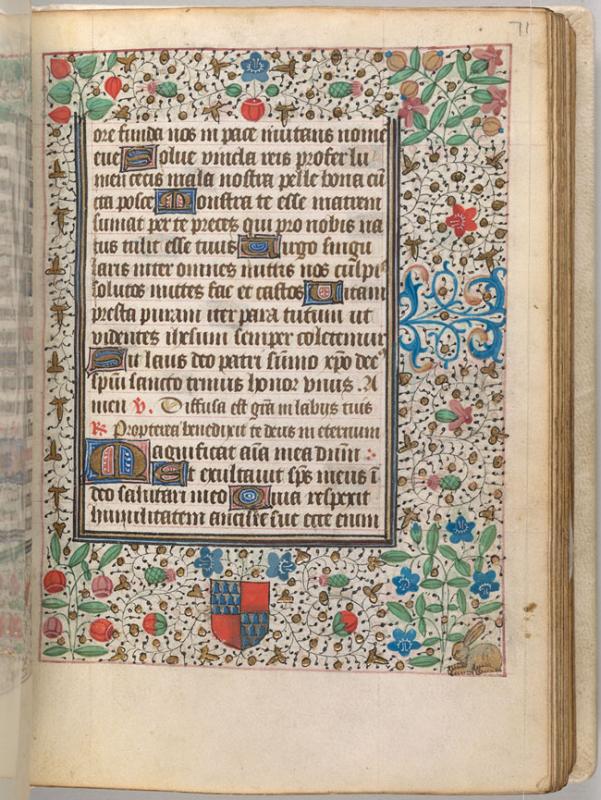 71
ore funda nos in pace mutans nomē
eue Solue vincla reis profer lu
men cecis mala nostra pelle bona cū
cta posce Monstra te esse matrem
sumat per te preces qui pro nobis na
tus tulit esse tuus Uirgo singu
laris inter omnes mitis nos culpis
solutos mites fac et castos Uitam
presta puram iter para tutum ut
videntes ihesum semper coletemur
Sit laus deo patri sūmo xpō dec⁹
spūi sancto trinus honor vnus . A
men v. Diffusa est grā in labijs tuis
R. Propterea benedixit te deus in eternum
Magnificat aīa mea dnm̄
Et exultauit sps̄ meus ī
deo salutari meo Quia respexit
humilitatem ancille sue ecce enim